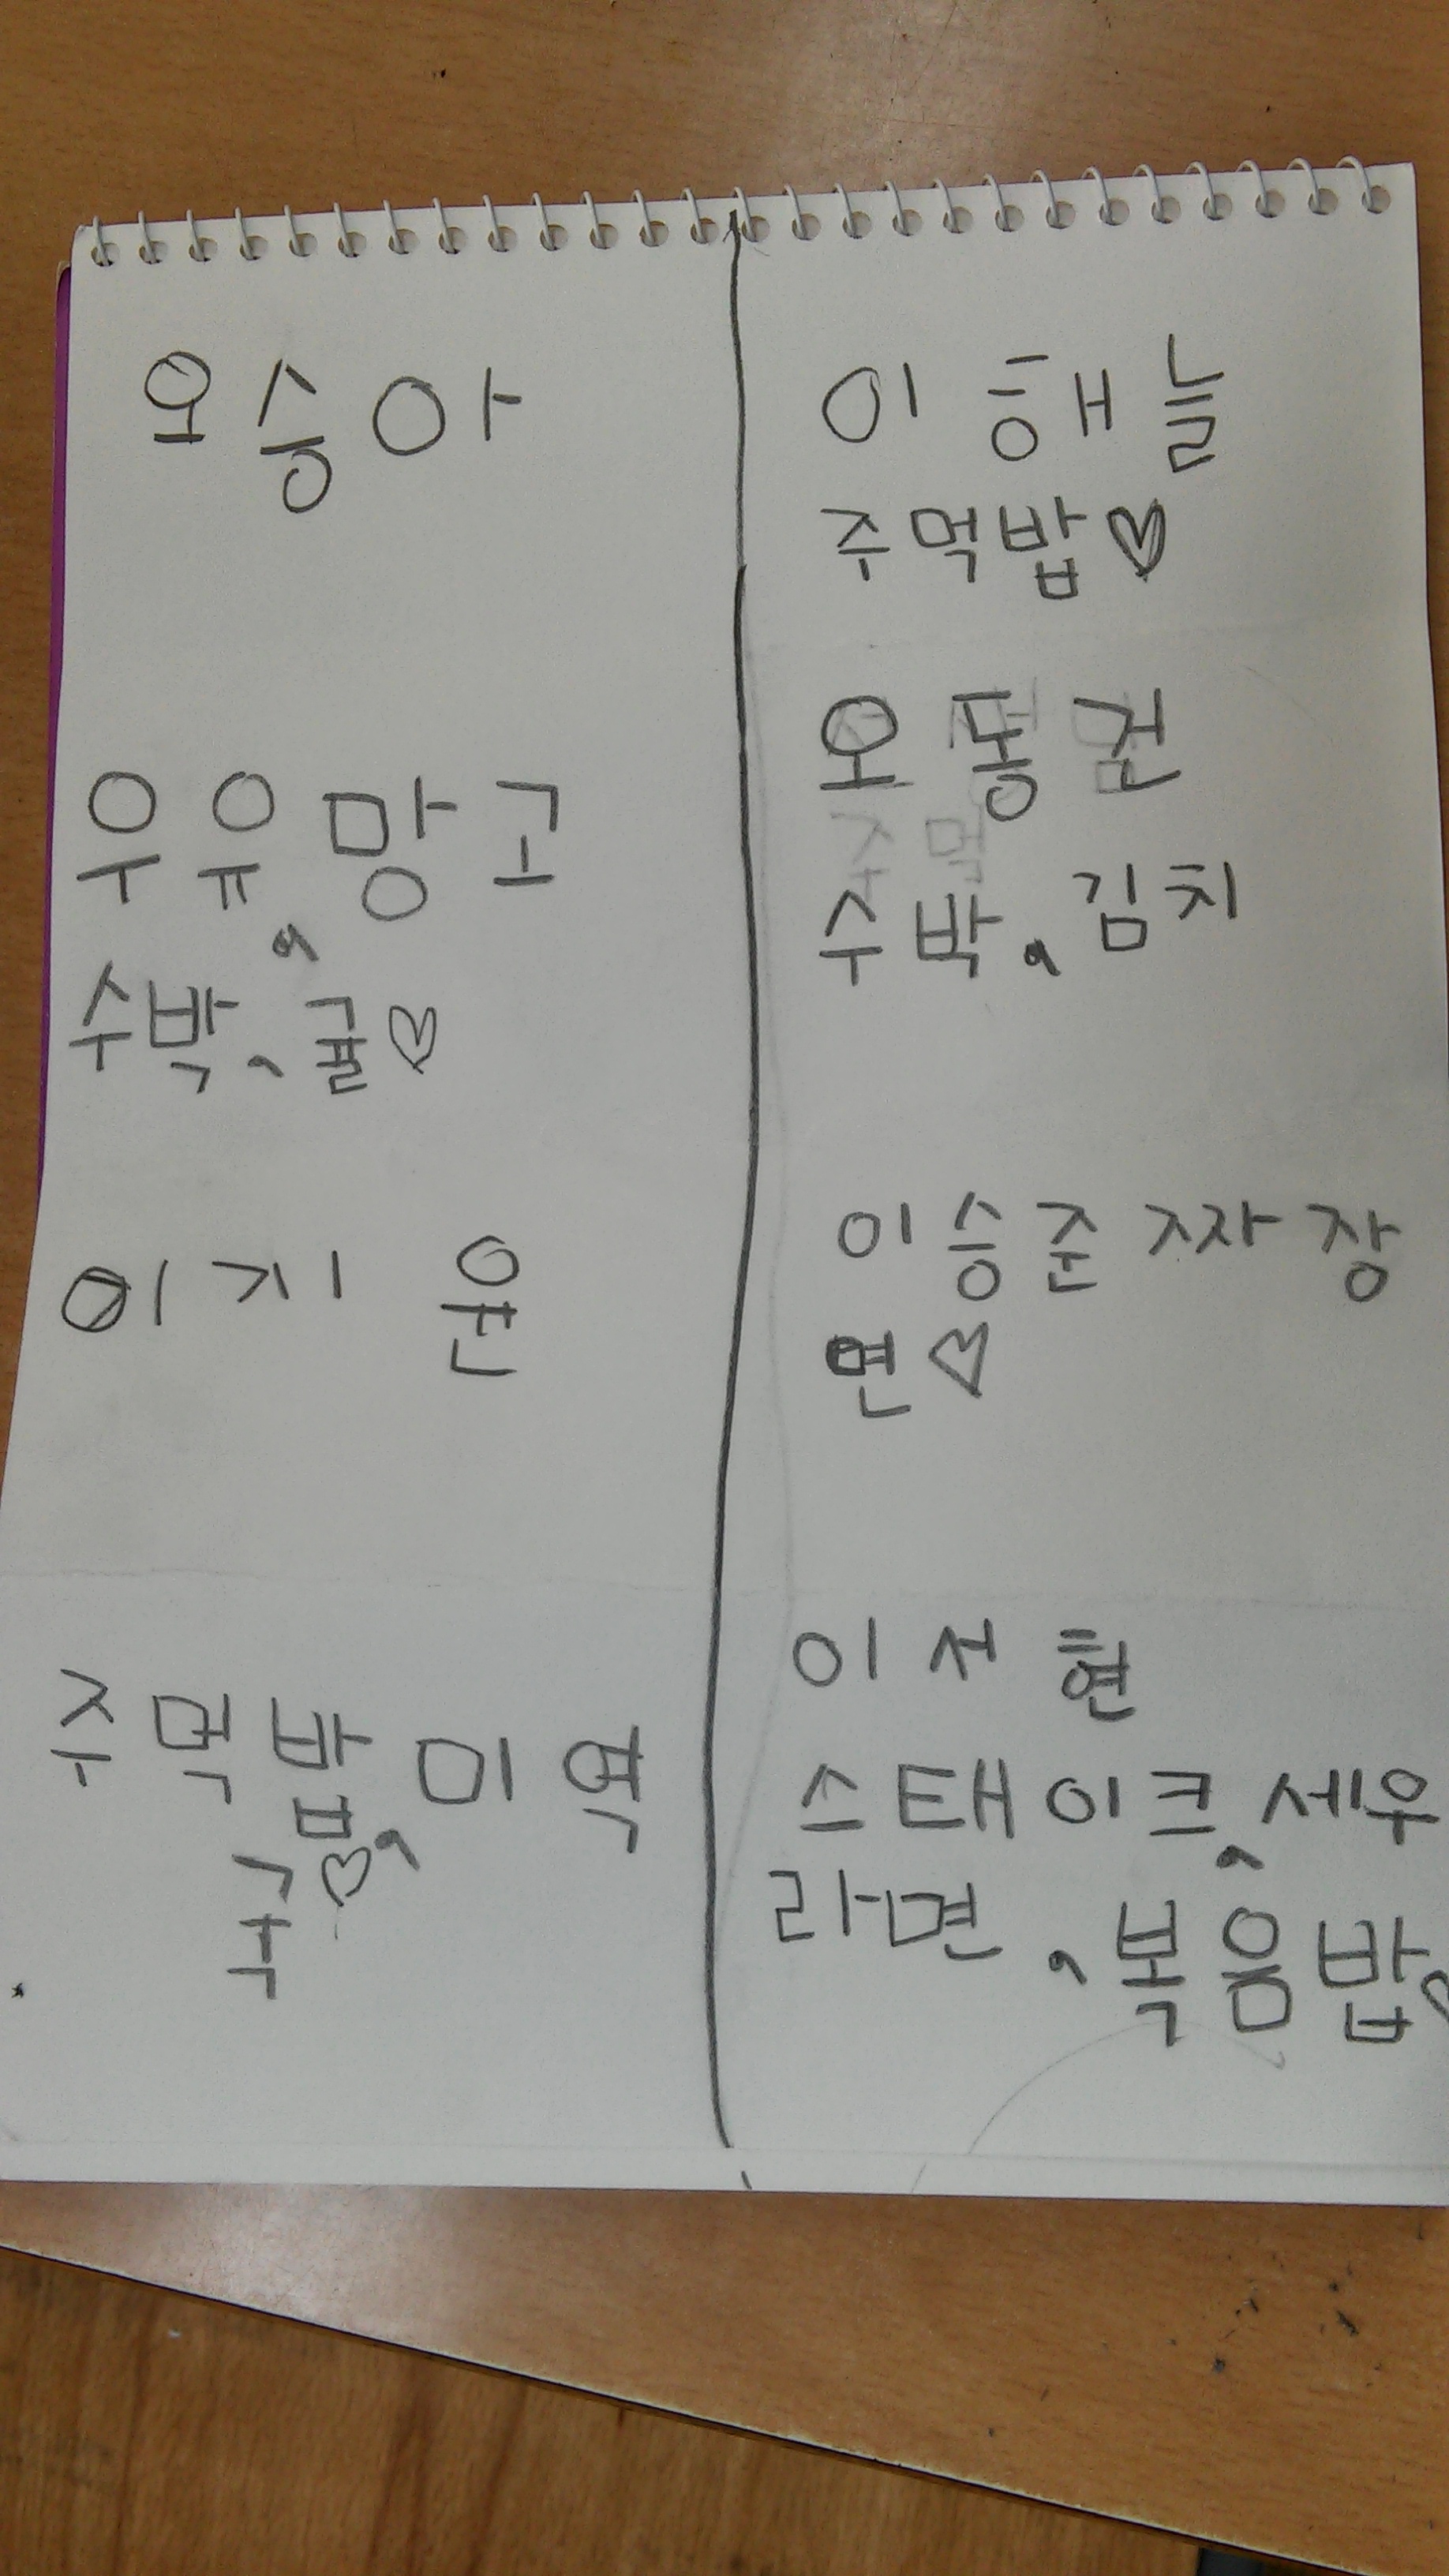 오승아
우유망고,
수박,귤♡
이지윤
주먹밥,미역
국♡
이해늘
주먹밥♡
오동건
수박,김치
이승준짜장
면♡
이서현
스태이크,세우
라면,복음밥♡